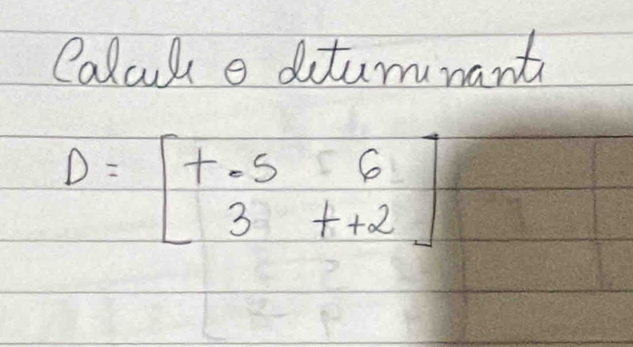 Calcule o determinante
D = [ t - 5 6
3 t + 2 ]